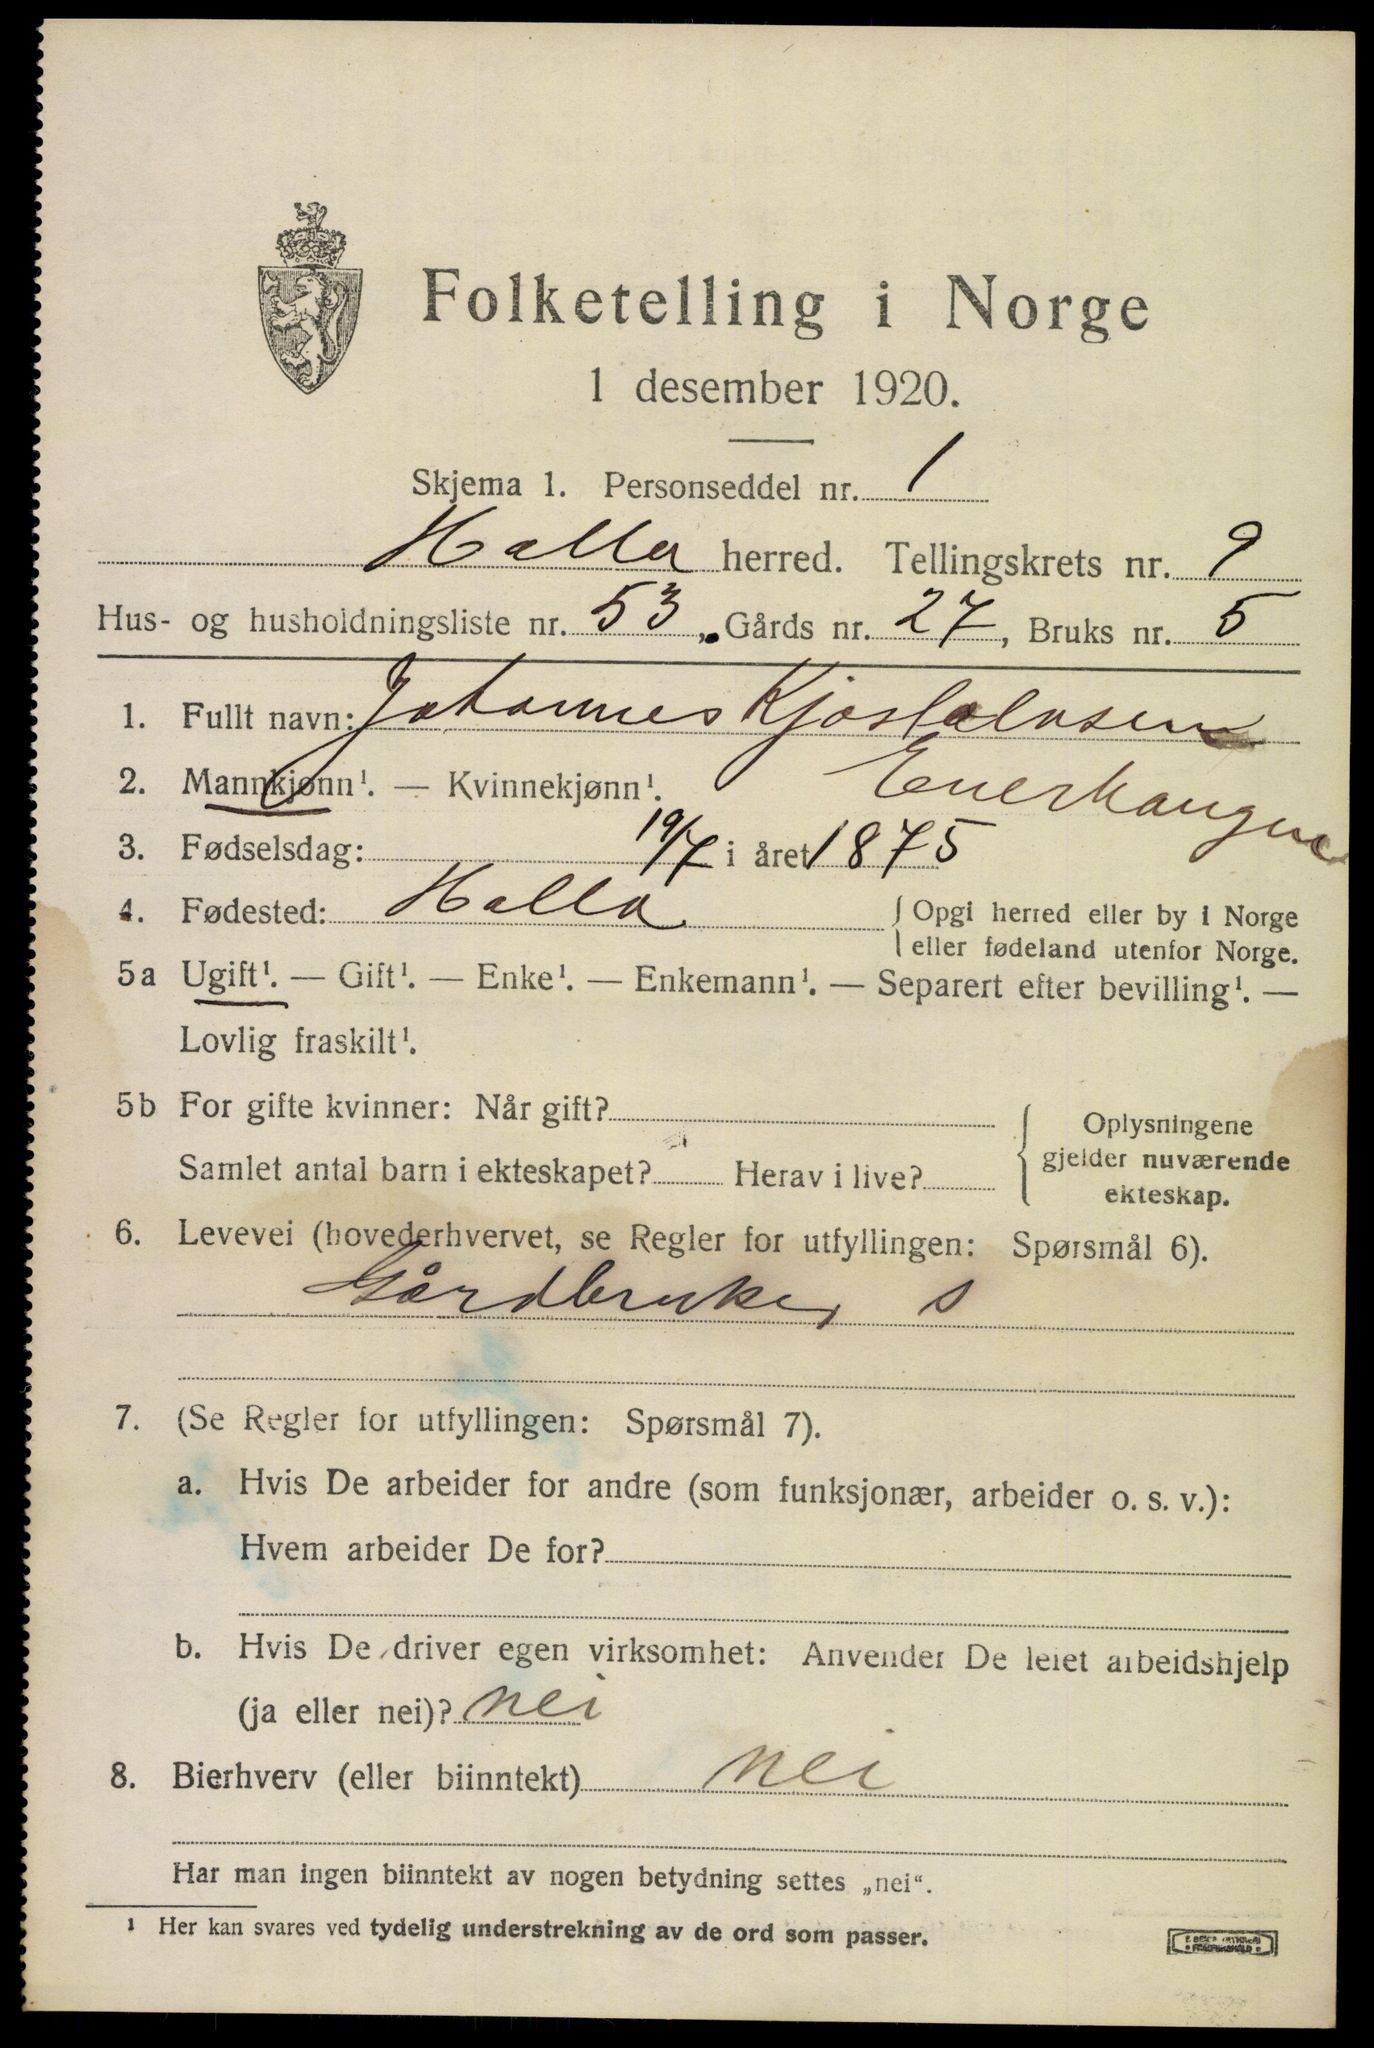 Folketelling i Norge
1 desember 1920.
Skjema 1. Personseddel nr. 1
Holla herred. Tellingskrets nr. 9
Hus- og husholdningsliste nr. 53, Gårds nr. 27, Bruks nr. 5
1. Fullt navn: Johannes Kjøstolvsen
2. Mannkjønn¹. — Kvinnekjønn¹.
3. Fødselsdag: 19/7 i året 1875
4. Fødested: Holla { Opgi herred eller by i Norge
eller fødeland utenfor Norge.
5a Ugift¹. — Gift¹. — Enke¹. — Enkemann¹. — Separert efter bevilling¹. —
Lovlig fraskilt¹.
5b For gifte kvinner: Når gift?
Samlet antal barn i ekteskapet? Herav i live?
{ Oplysningene
gjelder nuværende
ekteskap.
6. Levevei (hovederhvervet, se Regler for utfyllingen: Spørsmål 6).
Gårdbruker s
7. (Se Regler for utfyllingen: Spørsmål 7).
a. Hvis De arbeider for andre (som funksjonær, arbeider o. s. v.):
Hvem arbeider De for?
b. Hvis De driver egen virksomhet: Anvender De leiet arbeidshjelp
(ja eller nei)? nei
8. Bierhverv (eller biinntekt) nei
Har man ingen biinntekt av nogen betydning settes „nei“.
¹ Her kan svares ved tydelig understrekning av de ord som passer.